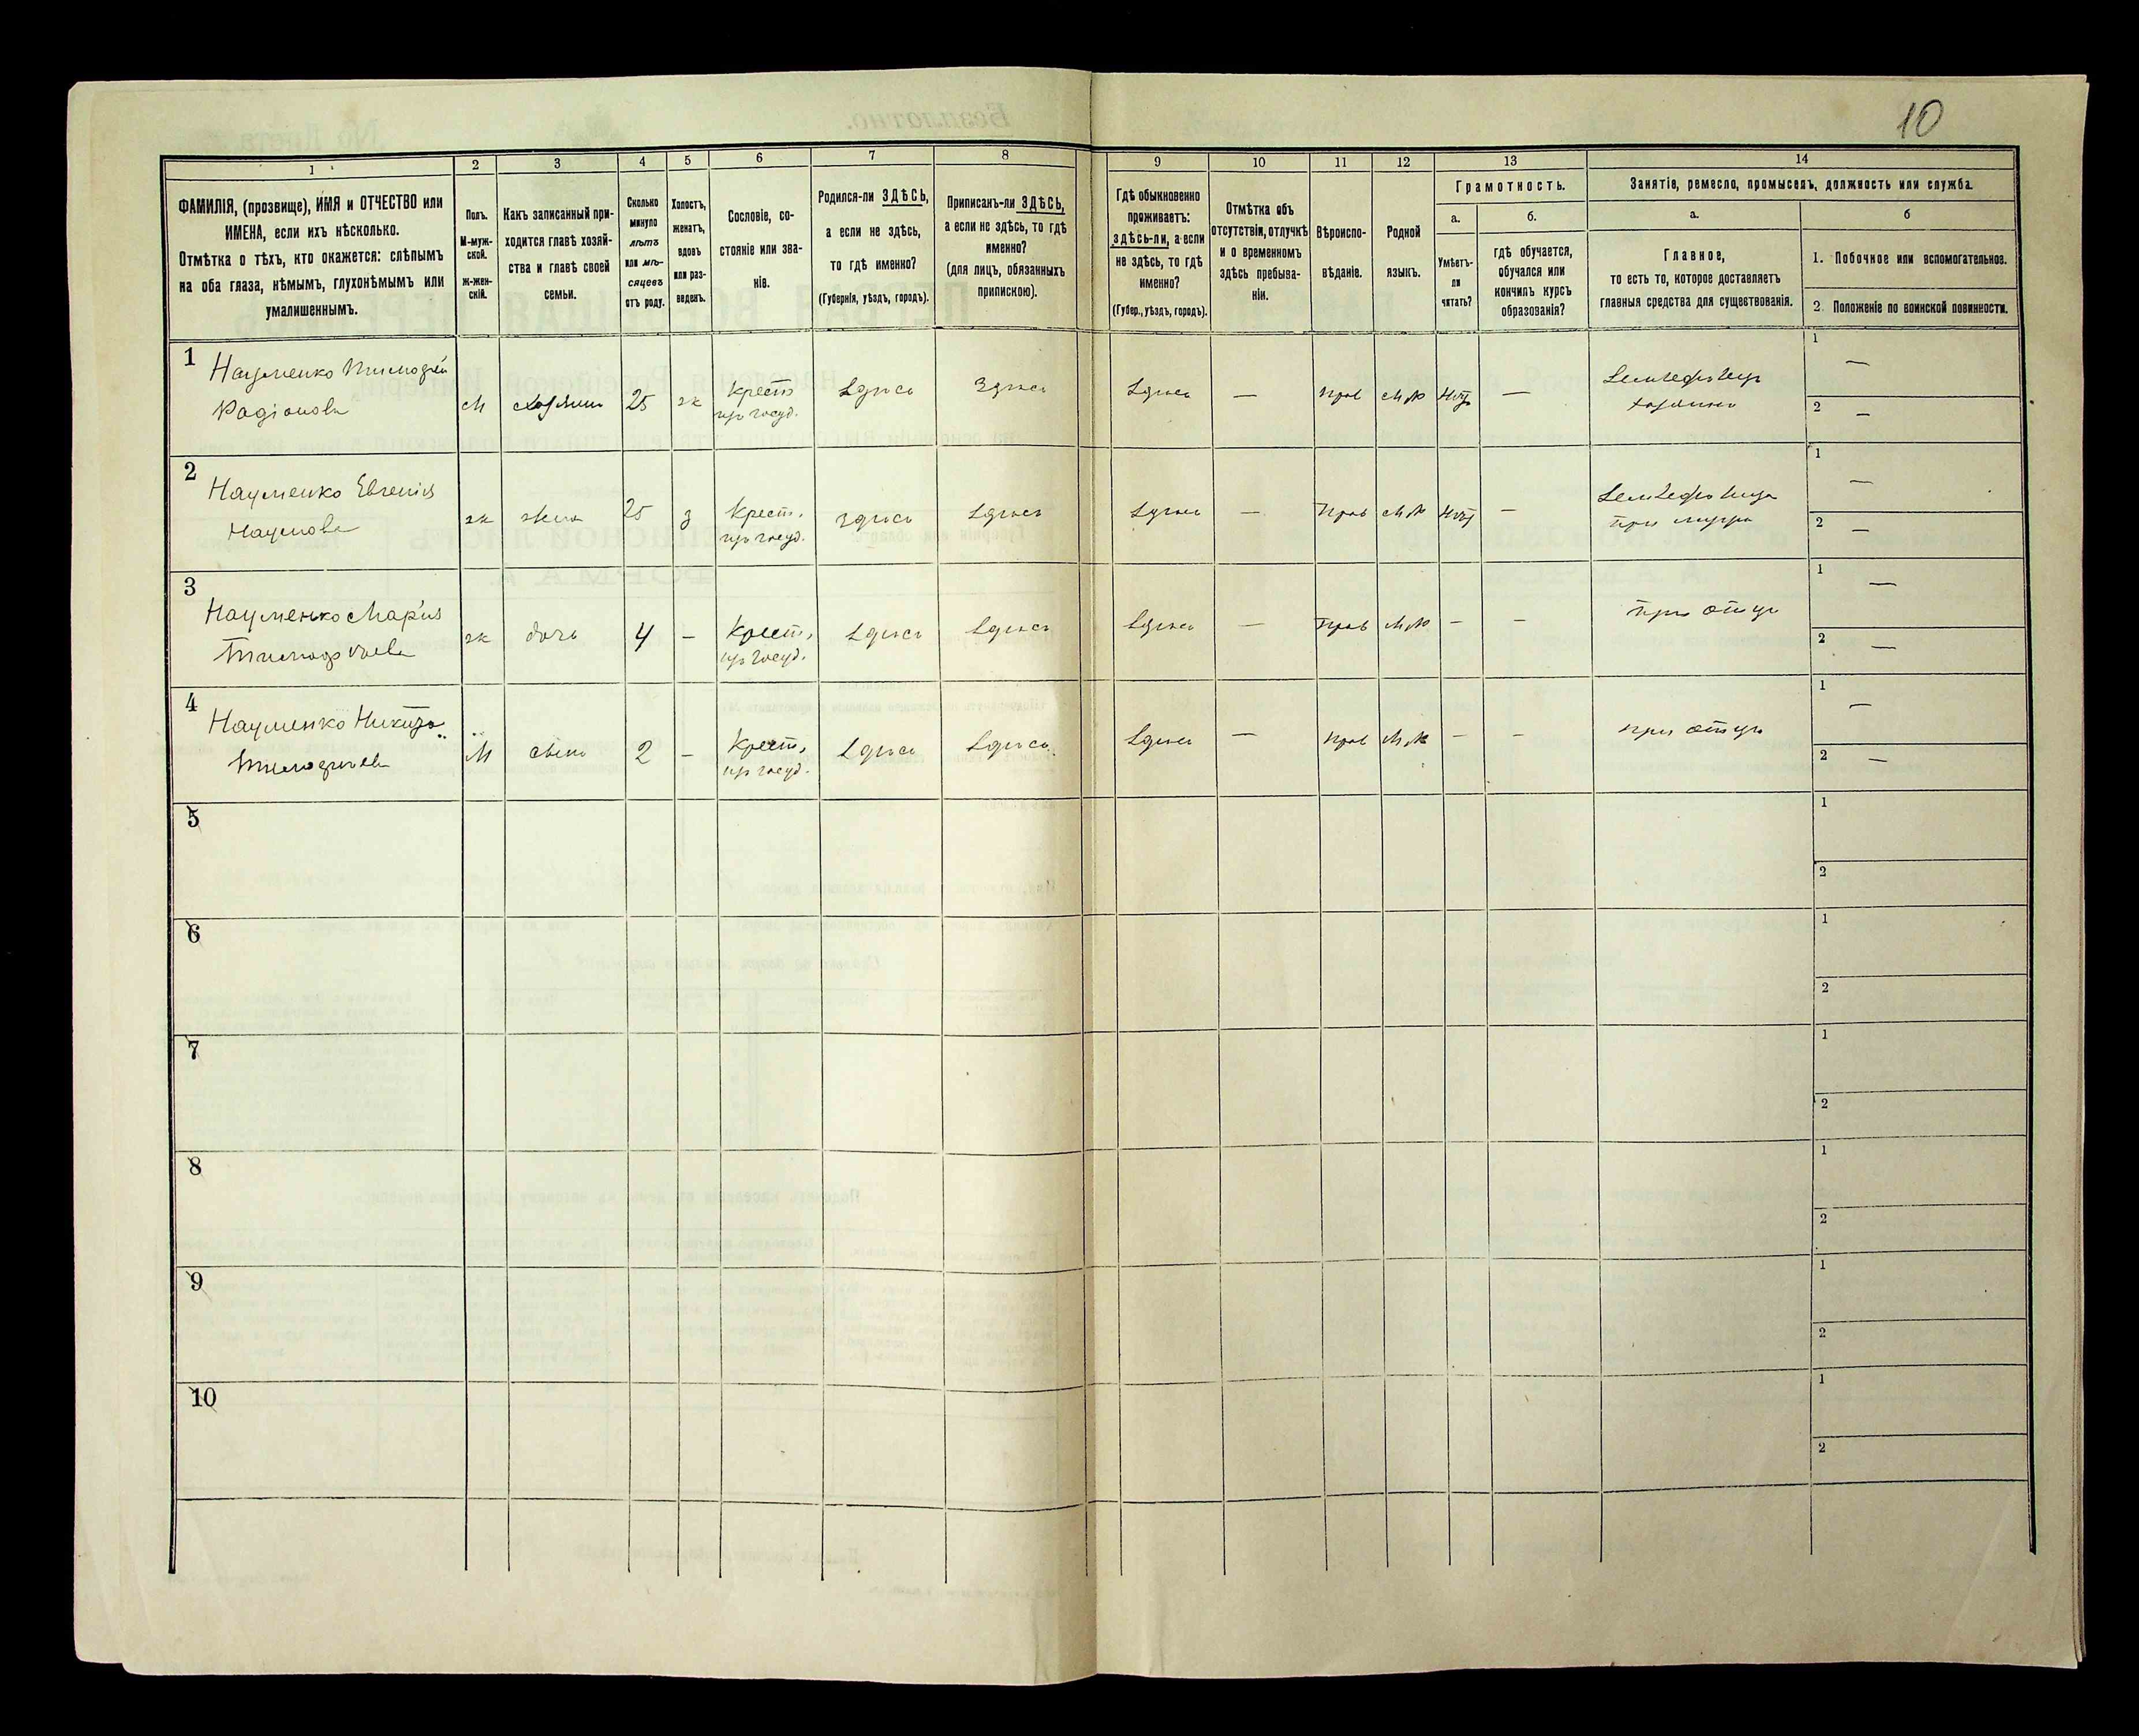 10
1
2
3
4
5
6
7
8
9
10
11
12
13
14
ФАМИЛІЯ, (прозвище), ИМЯ и ОТЧЕСТВО или
ИМЕНА, если ихъ нѣсколько.
Отмѣтка о тѣхъ, кто окажется: слѣпымъ
на оба глаза, нѣмымъ, глухонѣмымъ или
умалишеннымъ.
Полъ.
М-муж-
ской.
ж-жен-
скій.
Какъ записанный при-
ходится главѣ хозяй-
ства и главѣ своей
семьи.
Сколько
минуло
лѣтъ
или мѣ-
сяцевъ
отъ роду.
Холостъ,
женатъ,
вдовъ
или раз-
веденъ.
Сословіе, со-
стояніе или зва-
ніе.
Родился-ли ЗДѢСЬ,
а если не здѣсь,
то гдѣ именно?
(Губернія, уѣздъ, городъ).
Приписанъ-ли ЗДѢСЬ,
а если не здѣсь, то гдѣ
именно?
(для лицъ, обязанныхъ
припискою).
Гдѣ обыкновенно
проживаетъ:
здѣсь-ли, а если
не здѣсь, то гдѣ
именно?
(Губер., уѣздъ, городъ).
Отмѣтка объ
отсутствіи, отлучкѣ
и о временномъ
здѣсь пребыва-
ніи.
Вѣроиспо-
вѣданіе.
Родной
языкъ.
Грамотность.
а.
Умѣетъ-
ли
читать?
б.
гдѣ обучается,
обучался или
кончилъ курсъ
образованія?
Занятіе, ремесло, промыселъ, должность или служба.
а.
Главное,
то есть то, которое доставляетъ
главныя средства для существованія.
б
1. Побочное или вспомогательное.
2. Положеніе по воинской повинности.
1
Науменко Тимофей
Радіоновъ
М
хозяинъ
25
ж
Крест.
из госуд.
Здѣсь
Здѣсь
Здѣсь
—
Прав
М.
Нѣтъ
—
Земледѣлецъ
хозяинъ
1
—
2
—
2
Науменко Евгенія
Наумова
ж
жена
25
з
Крест.
из госуд.
Здѣсь
Здѣсь
Здѣсь
—
Прав
М.
Нѣтъ
—
при мужѣ
1
—
2
—
3
Науменко Марія
Тимофѣева
ж
дочь
4
—
Крест.
из госуд.
Здѣсь
Здѣсь
Здѣсь
—
Прав
М.
—
—
при отцѣ
1
—
2
—
4
Науменко Никита
Тимофѣевъ
М
сынъ
2
—
Крест.
из госуд.
Здѣсь
Здѣсь
Здѣсь
—
Прав
М.
—
—
при отцѣ
1
—
2
—
5
1
2
6
1
2
7
1
2
8
1
2
9
1
2
10
1
2